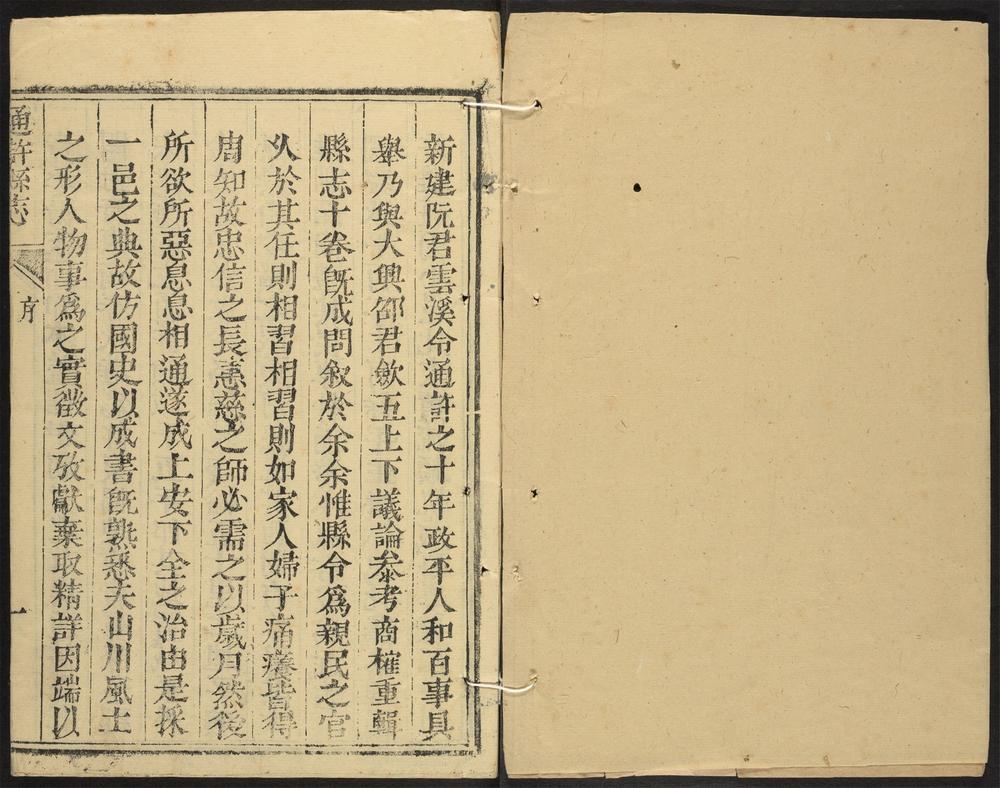 新建阮君雲溪令通許之十年政平人和百事具
舉乃與大興邵君歛五上下議論叅考商榷重輯
縣志十卷旣成問敘於余余惟縣令爲親民之官
久於其任則相習相習則如家人婦子痛癢皆得
周知故忠信之長惠慈之師必需之以歲月然後
所欲所惡息息相通遂成上安下全之治由是採
一邑之典故仿國史以成書旣熟悉夫山川風土
之形人物事爲之實徵文攷獻棄取精詳因端以
通許縣志
序
一